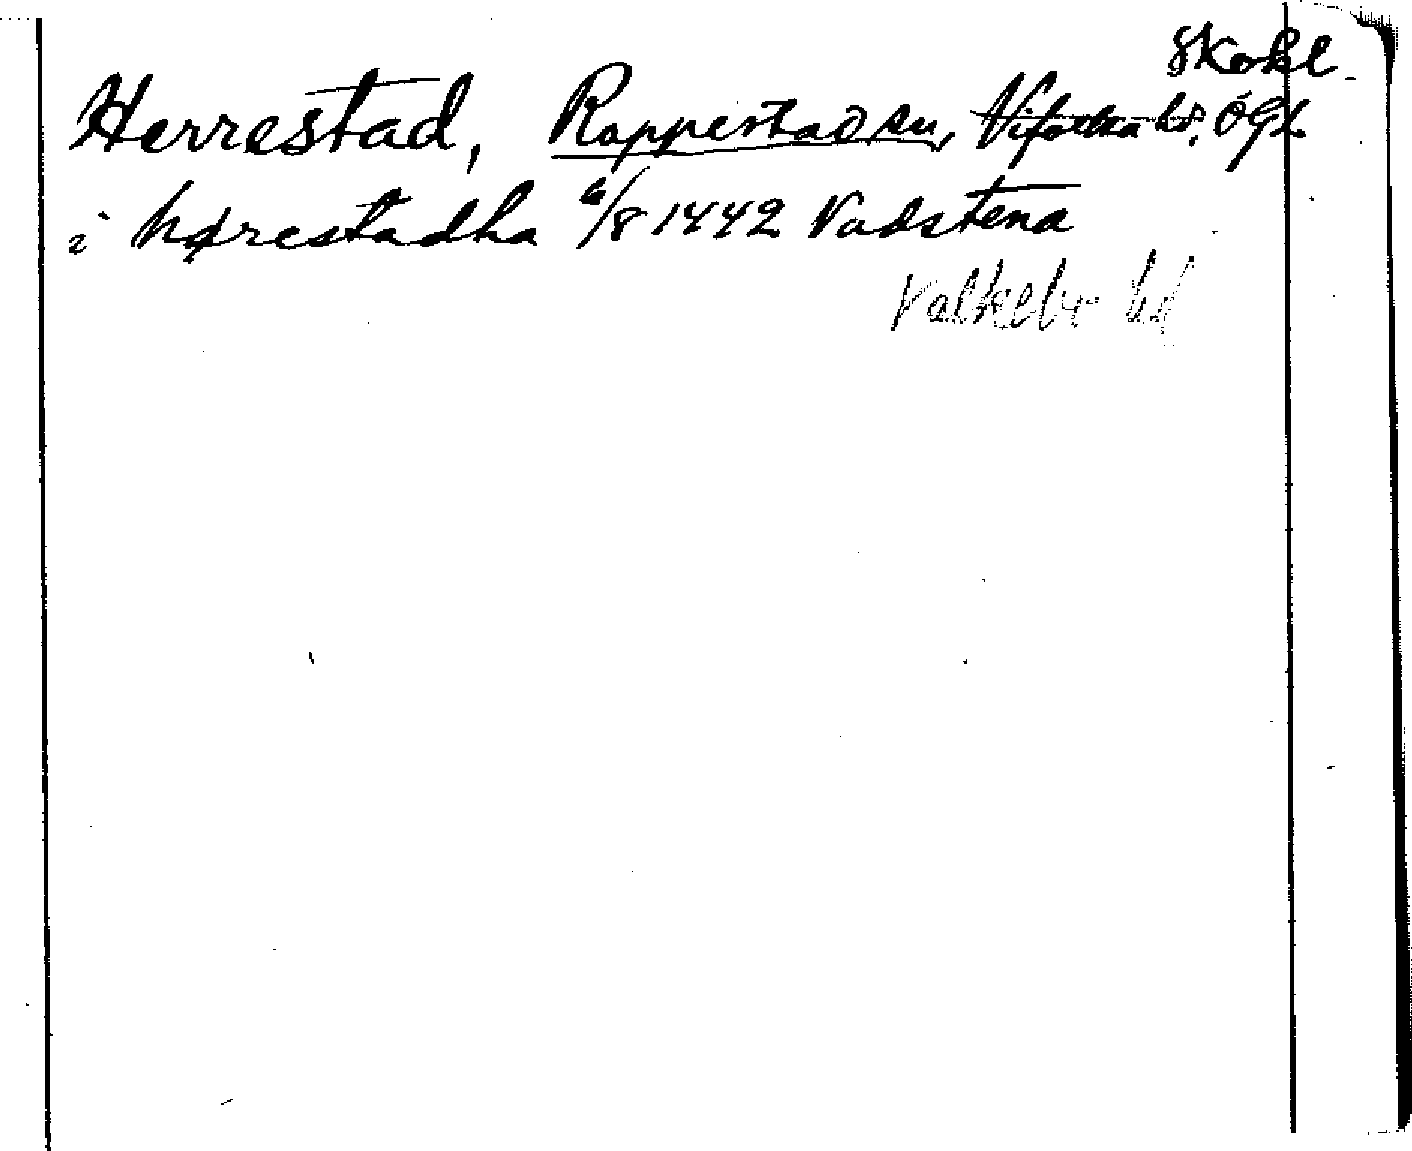 Skokl
Herrestad, Rappestad sn, Vifolka hd, ÖGL
i hørestadha 6/8 1442 Vadstena
Valkebo hd